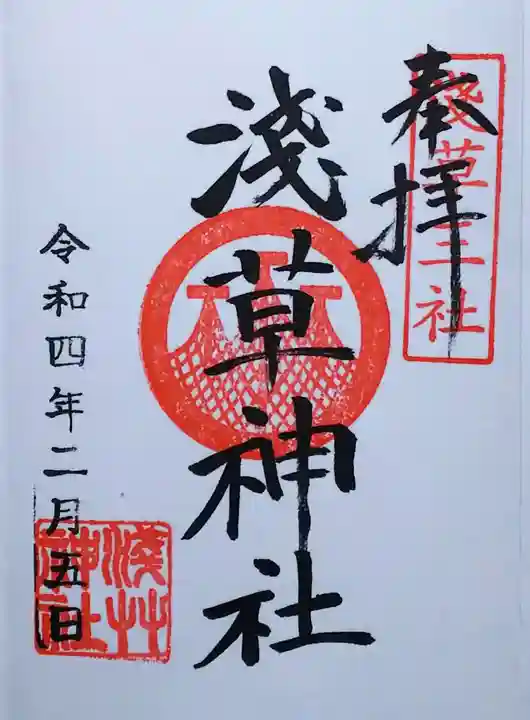 奉拝
淺草三社
淺草神社
令和四年二月五日
淺艸神社